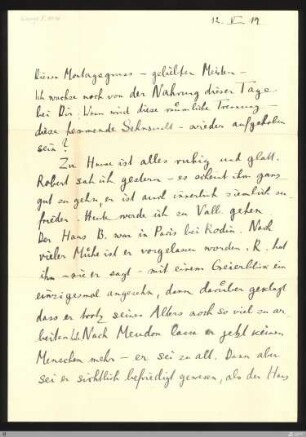 12. X 19
diesen Montagsgruss - geliebter Meister -
Ich wachse noch von der Nahrung dieser Tage
bei Dir. Wann wird diese räumliche Trennung -
diese Sehnsucht - wieder aufgehoben
sein?
Zu Hause ist alles ruhig und glatt.
Robert sah ich gestern - es scheint ihm ganz
gut zu gehn, er ist auch innerlich ziemlich zu-
frieden - Heute werde ich zu Vall. gehen
Der Hans B. war in Paris bei Rodin. Nach
vieler Mühe ist er vorgelassen worden. R. hat
ihn - wie er sagt - mit einem Geierblick ein
einzigesmal angesehn, dann darüber geklagt
dass er trotz seines Alters noch so viel zu ar-
beiten hat. Nach Meudon lasse er jetzt keinen
Menschen mehr - er sei zu alt. Dann aber
sei er sichtlich befriedigt gewesen, als der Hans